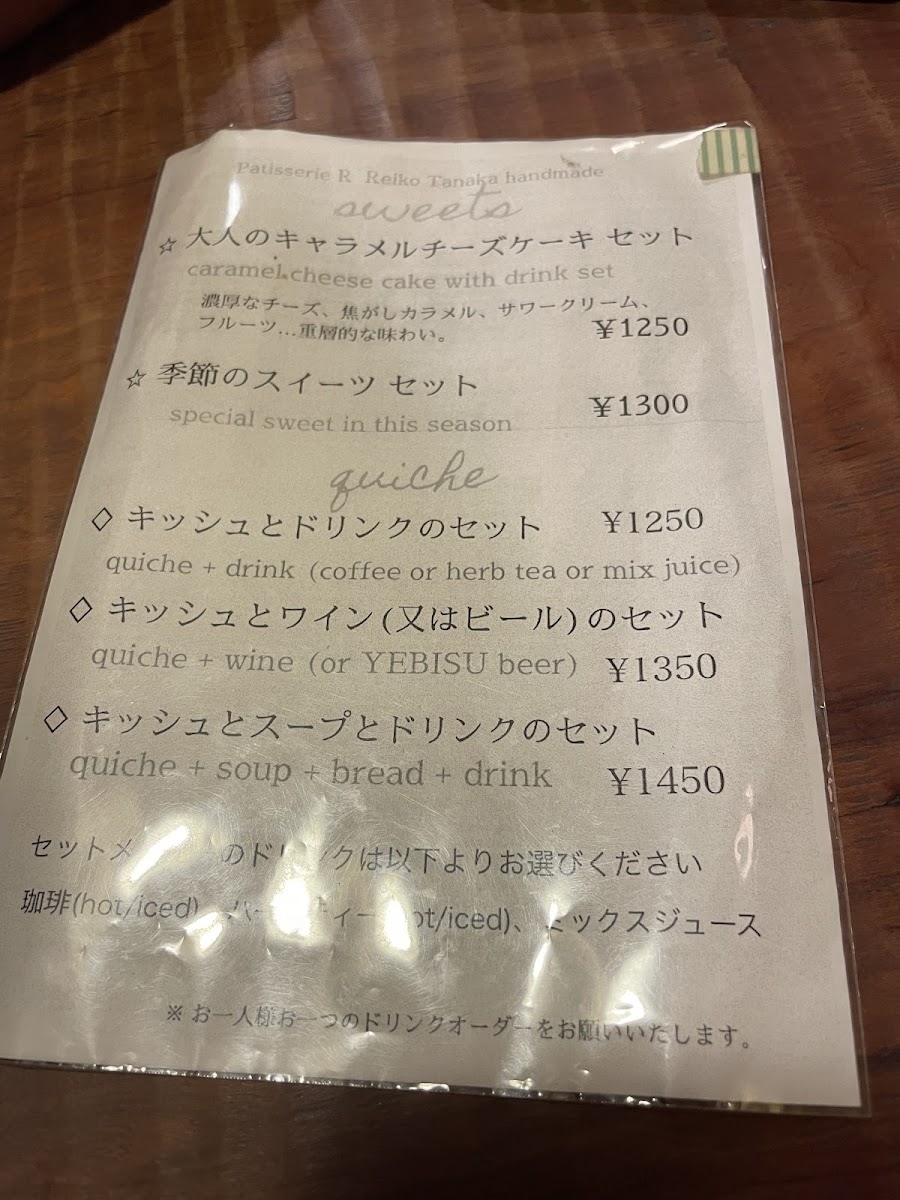 Patisserie R Reiko Tanaka handmade
sweets
☆ 大人のキャラメルチーズケーキ セット
caramel cheese cake with drink set
濃厚なチーズ、焦がしカラメル、サワークリーム、
フルーツ…重層的な味わい。 ¥1250
☆ 季節のスイーツ セット
special sweet in this season ¥1300
quiche
◇ キッシュとドリンクのセット ¥1250
quiche + drink (coffee or herb tea or mix juice)
◇ キッシュとワイン(又はビール)のセット
quiche + wine (or YEBISU beer) ¥1350
◇ キッシュとスープとドリンクのセット
quiche + soup + bread + drink ¥1450
セットメ のドリンクは以下よりお選びください
珈琲(hot/iced)、ハーブティー(hot/iced)、ミックスジュース
※ お一人様お一つのドリンクオーダーをお願いいたします。